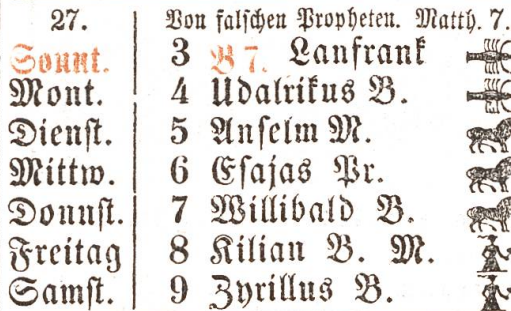 27. Von falschen Propheten. Matth. 7.
Sonnt. 3 B 7. Lanfrank
Mont. 4 Udalrikus B.
Dienst. 5 Anselm M.
Mittw. 6 Esajas Pr.
Donnst. 7 Willibald B.
Freitag 8 Kilian B. M.
Samst. 9 Zyrillus B.